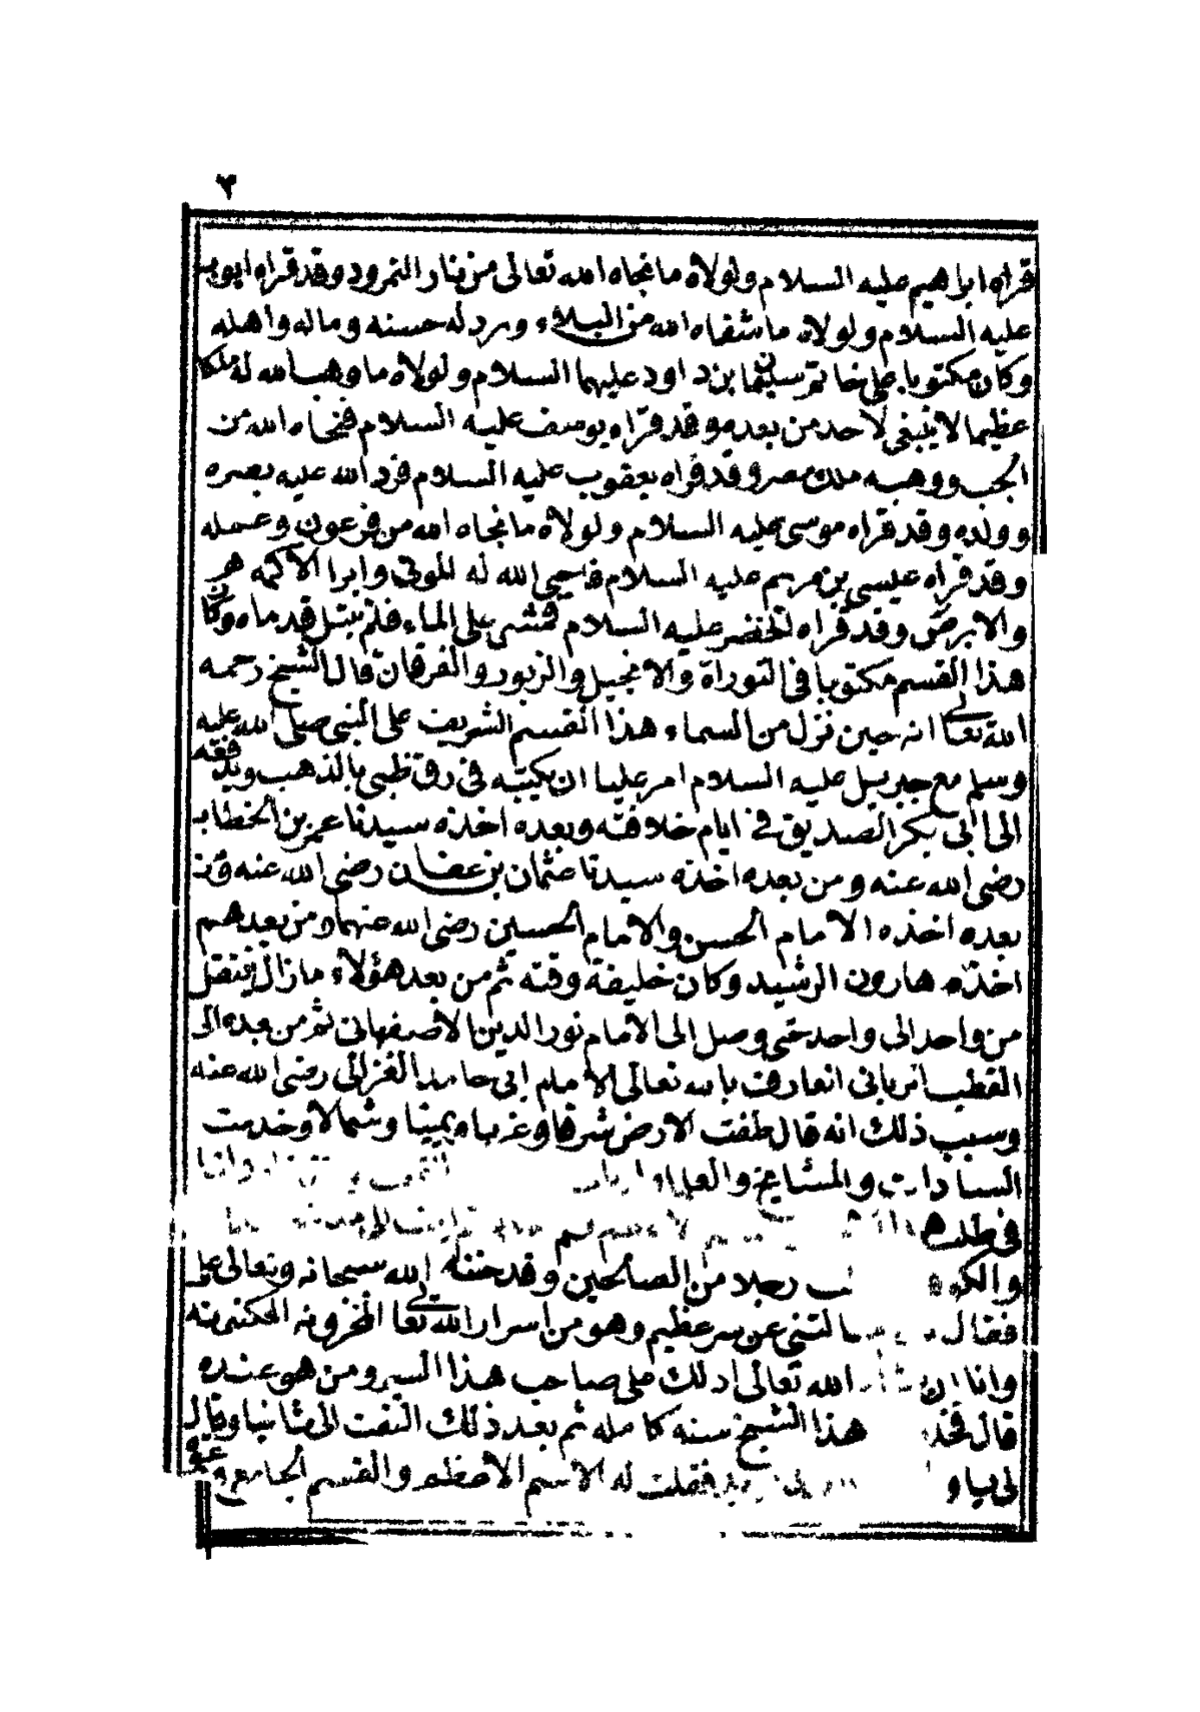 ٣
قراه ابراهيم عليه السلام ولولاه ما نجاه الله تعالى من نار النمرود وقد قراه ايوب
عليه السلام ولولاه ما شفاه الله من البلاء ورد له حسنه وماله واهله
وكان مكتوبا على خاتم سليمان بن داود عليهما السلام ولولاه ما وهب الله له ملكا
عظيما لا ينبغي لاحد من بعده وقد قراه يوسف عليه السلام فنجاه الله من
الجب ووهبه ملك مصر وقد قراه يعقوب عليه السلام فرد الله عليه بصره
وولده وقد قراه موسى عليه السلام ولولاه ما نجاه الله من فرعون وعمله
وقد قراه عيسى بن مريم عليه السلام فاحيى الله له الموتى وابرا الاكمه
والابرص وقد قراه الخضر عليه السلام فمشى على الماء فلم يبتل قدماه وكان
هذا القسم مكتوبا في التوراة والانجيل والزبور والفرقان قال الشيخ رحمه
الله تعالى انه حين نزل من السماء هذا القسم الشريف على النبي صلى الله عليه
وسلم مع جبريل عليه السلام امر عليا ان يكتبه في رق ظبي بالذهب ويدفعه
الى ابى بكر الصديق في ايام خلافته وبعده اخذه سيدنا عمر بن الخطاب
رضى الله عنه ومن بعده اخذه سيدنا عثمان بن عفان رضى الله عنه ومن
بعده اخذه الامام الحسن والامام الحسين رضى الله عنهما ومن بعدهم
اخذه هارون الرشيد وكان خليفة وقته ثم من بعد هؤلاء ما زال ينتقل
من واحد الى واحد حتى وصل الى الامام نور الدين الاصفهاني ثم من بعده الى
القطب الرباني العارف بالله تعالى الامام ابى حامد الغزالى رضى الله عنه
وسبب ذلك انه قال طفت الارض شرقا وغربا ويمينا وشمالا وخدمت
السادات والمشايخ والعلماء وانا
في طلب
رجلا من الصالحين وقد حننه الله سبحانه وتعالى على
فقال سالتنى عن سر عظيم وهو من اسرار الله تعالى المخزونه المكنونه
وانا ان شاء الله تعالى ادلك على صاحب هذا السر ومن هو عنده
قال هذا الشيخ سنه كامله ثم بعد ذلك التفت الى ثانيا وقال
لى يا فقلت له الاسم الاعظم والقسم الجامع